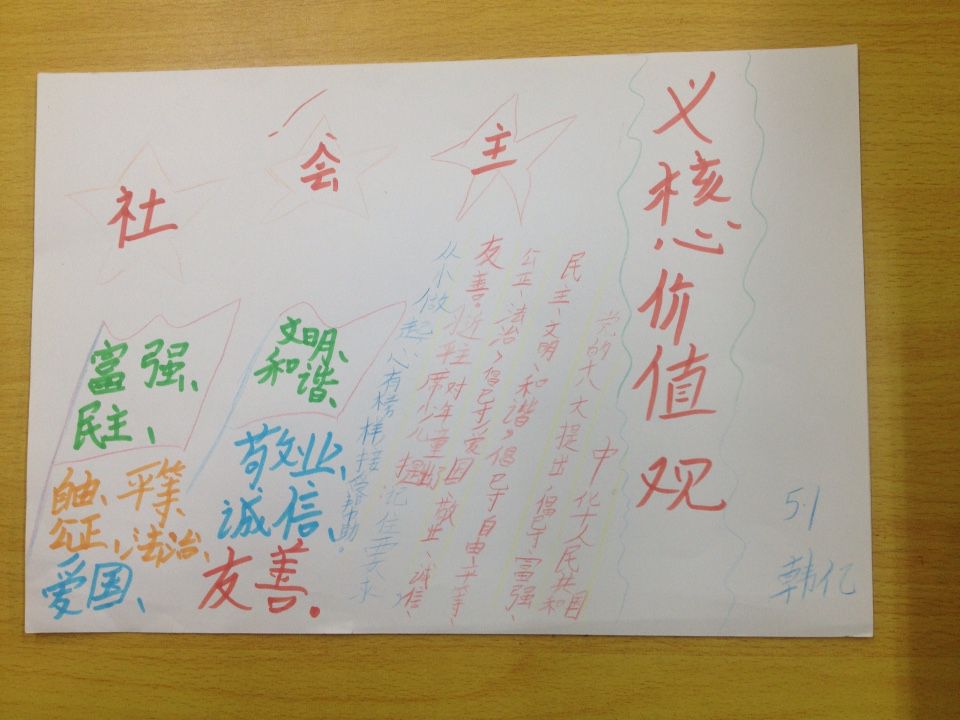 社会主
义核心价值观
中化人人民共和国
党的十八大提出,倡导富强、
民主、文明、和谐,倡导自由、平等、
公正、法治,倡导爱国、敬业、诚信、
友善。习近平主席对少年儿童提出
记住要求
心有榜样
从小做起
接受帮助。
富强、
民主、
文明、
和谐、
自由、平等
公正、法治、
敬业、
诚信、
爱国、
友善。
5.1
韩亿